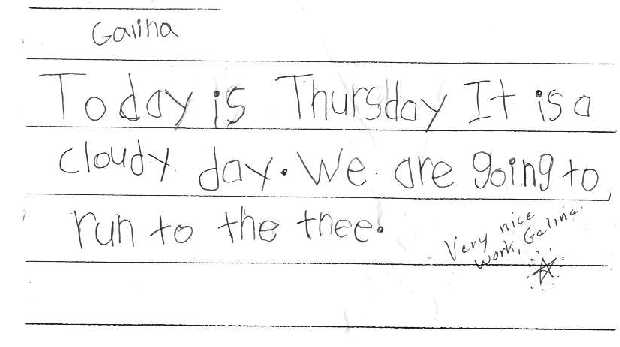 Galina
Today is Thursday It is a
cloudy day. We are going to
run to the thee.
Very nice
work, Galina.